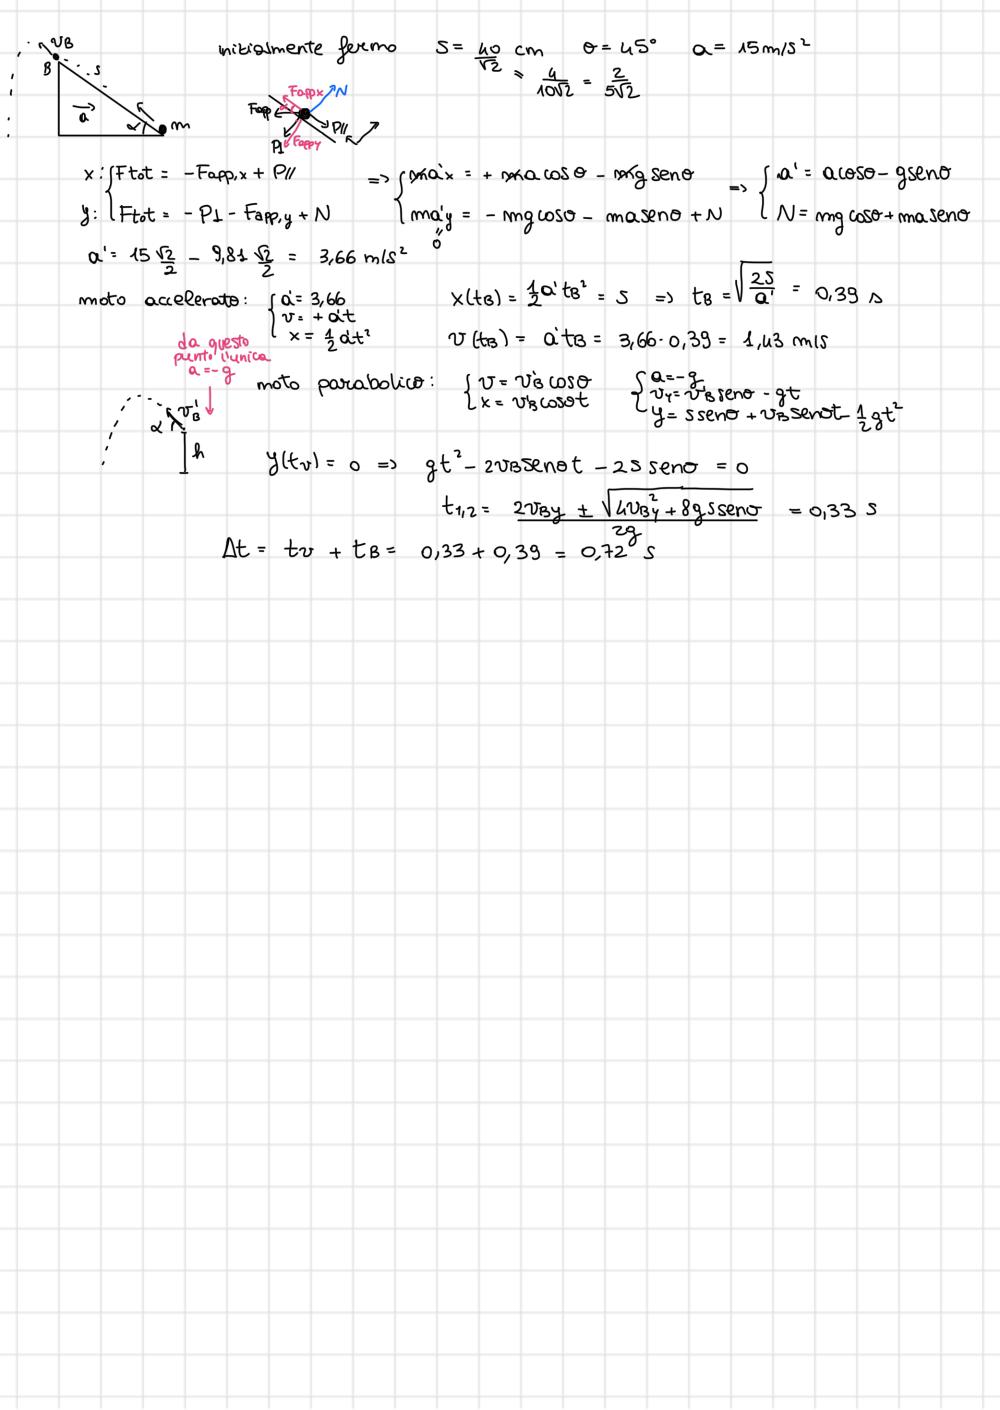 vB
B
s
a
α
m
inizialmente fermo s = 40/√2 cm θ = 45° a = 15 m/s²
= 4/10√2 = 2/5√2
Fapp,x N
Fapp P//
P⊥ Fapp,y
x: { Ftot = -Fapp,x + P// => { ma'x = + ma cosθ - mg senθ => { a' = a cosθ - g senθ
y: { Ftot = -P⊥ - Fapp,y + N { ma'y = - mg cosθ - ma senθ + N { N = mg cosθ + ma senθ
0
a' = 15 √2/2 - 9,81 √2/2 = 3,66 m/s²
moto accelerato: { a' = 3,66
v = + a't
x = 1/2 a't²
x(tB) = 1/2 a' tB² = s => tB = √(2s/a') = 0,39 s
v(tB) = a' tB = 3,66 · 0,39 = 1,43 m/s
da questo
punto l'unica
a = -g
moto parabolico: { v = v'B cosθ
x = v'B cosθ t
{ a = -g
vy = v'B senθ - gt
y = s senθ + vB senθ t - 1/2 gt²
v'B
α
h
y(tv) = 0 => gt² - 2vB senθ t - 2s senθ = 0
t1,2 = 2vBy ± √(4vBy² + 8gs senθ) / 2g = 0,33 s
Δt = tv + tB = 0,33 + 0,39 = 0,72 s